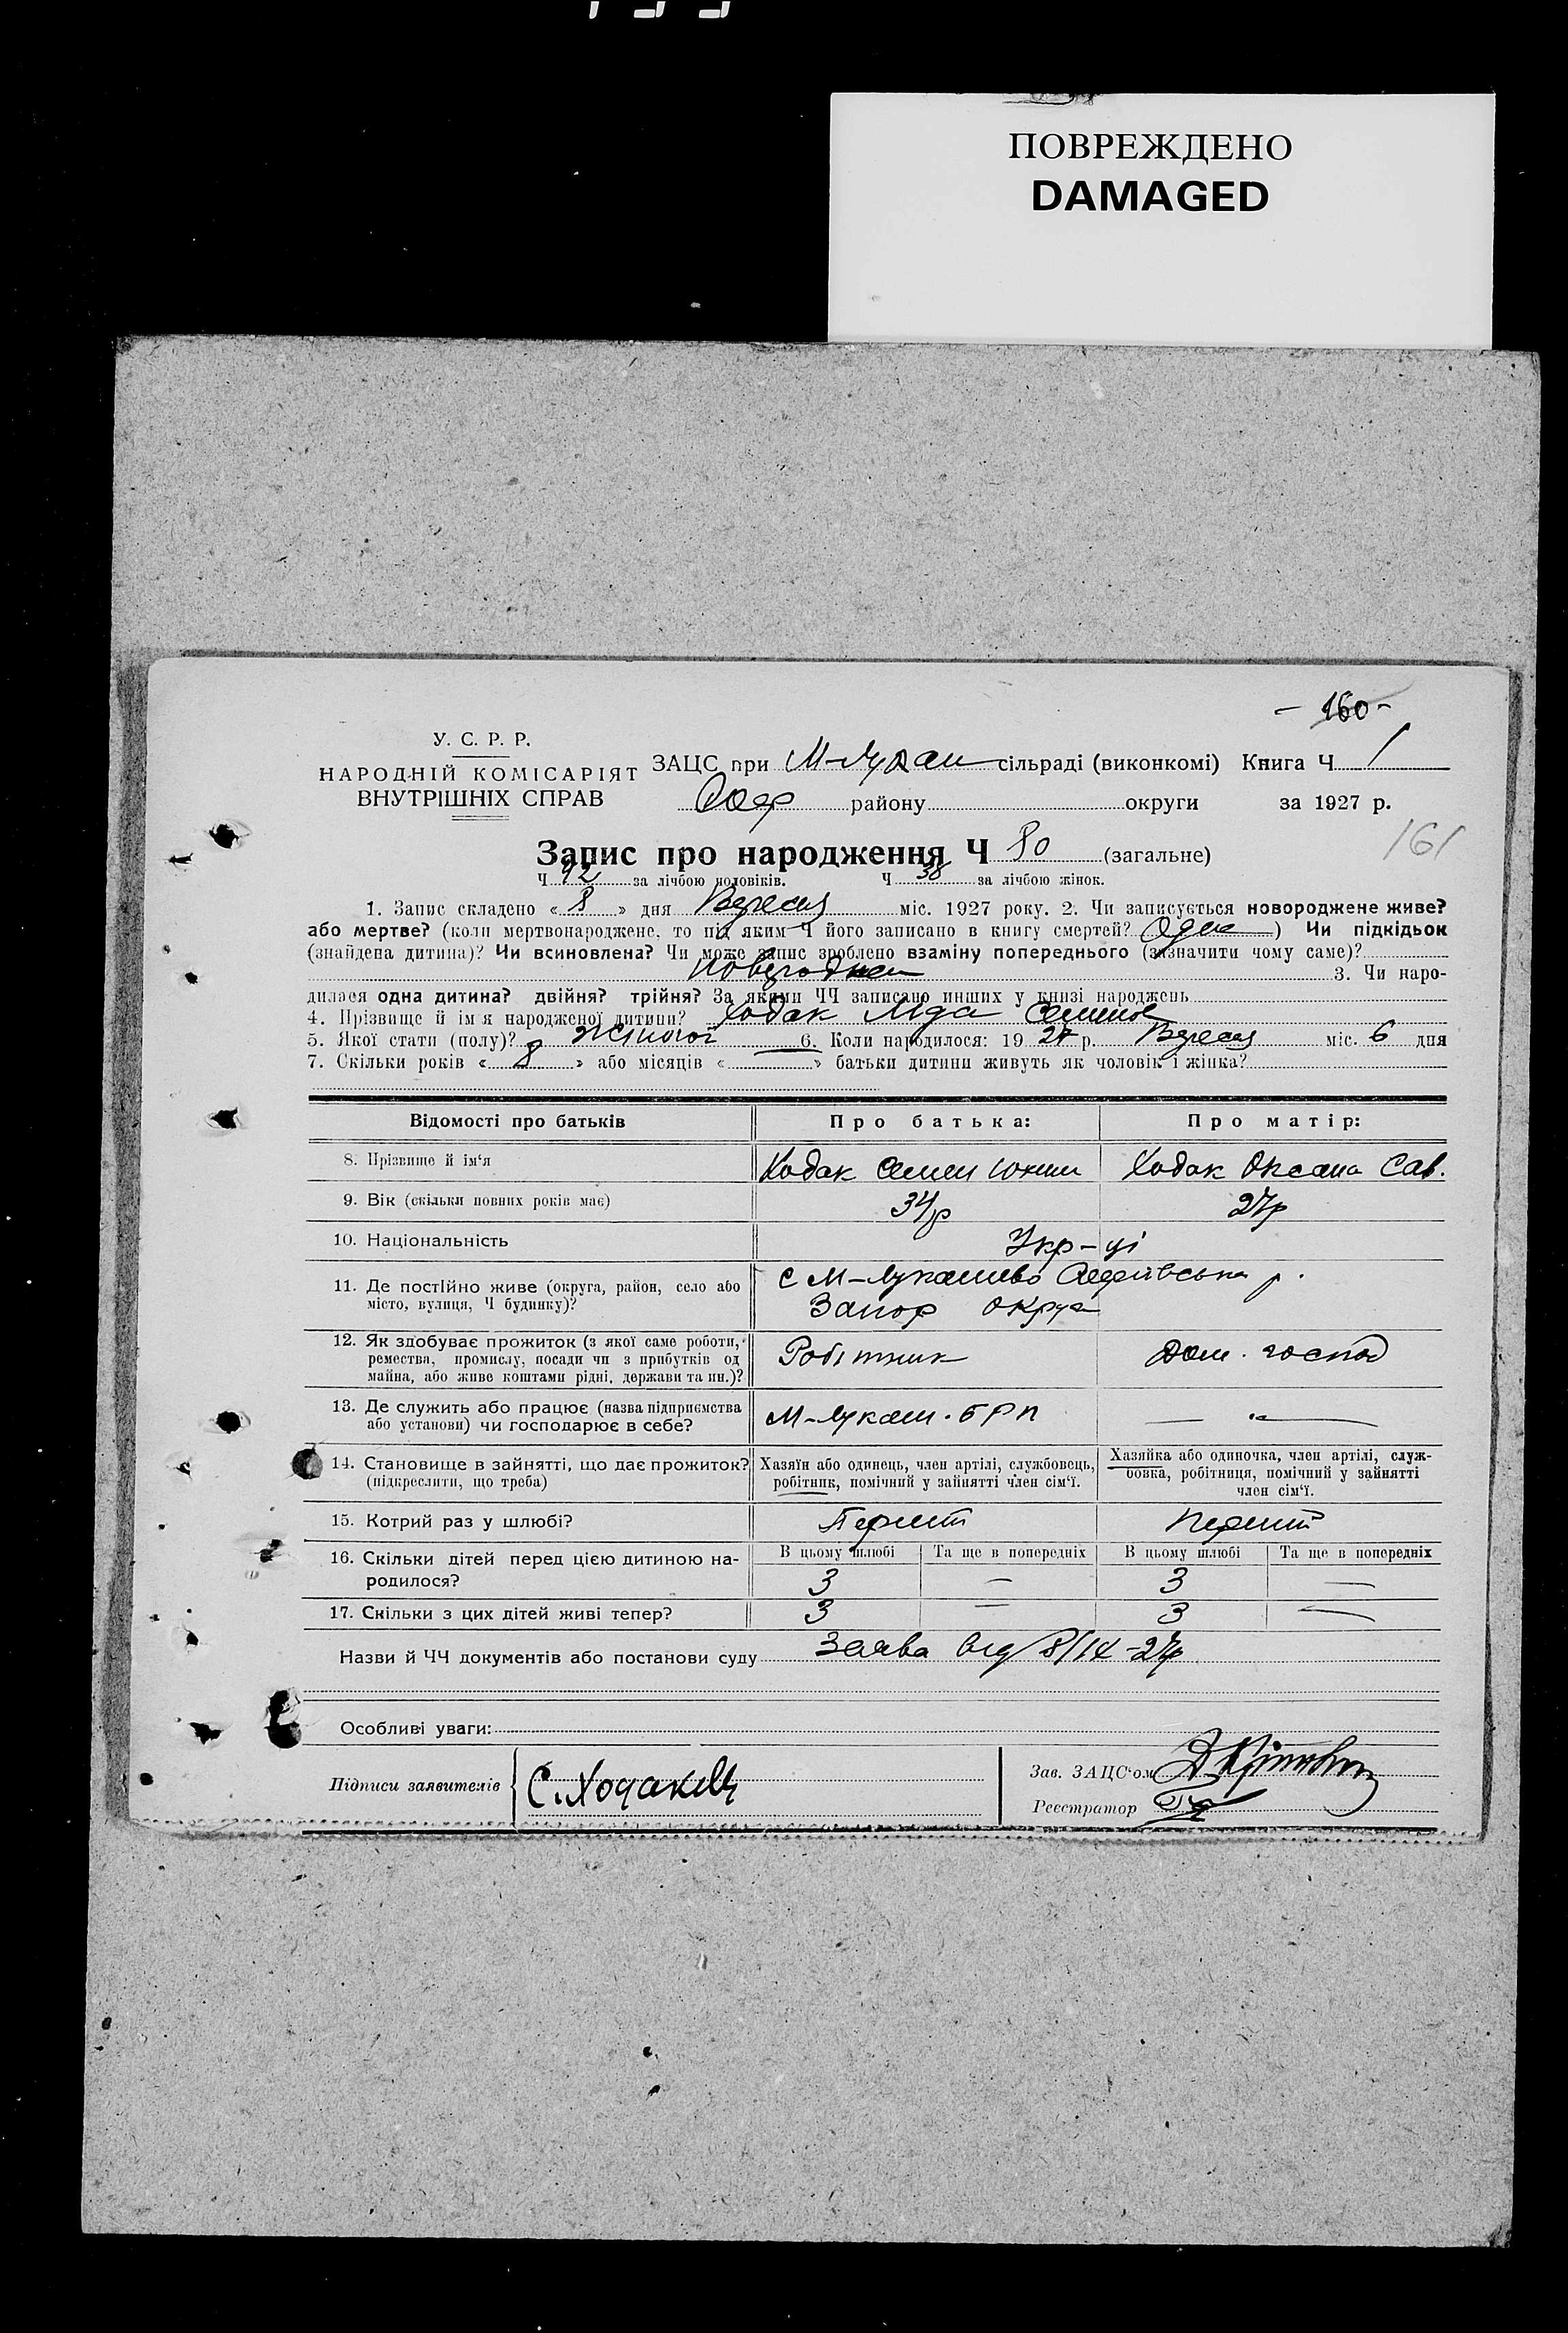 ПОВРЕЖДЕНО
DAMAGED
- 160 -
У. С. Р. Р.
НАРОДНІЙ КОМІСАРІЯТ
ВНУТРІШНІХ СПРАВ
ЗАЦС при М-Лукаш сільраді (виконкомі) Книга Ч 1
району округи за 1927 р.
161
Запис про народження Ч 80 (загальне)
Ч 42 за лічбою чоловіків. Ч 38 за лічбою жінок.
1. Запис складено « 8 » дня Вересня міс. 1927 року. 2. Чи записується новороджене живе?
або мертве? (коли мертвонароджене, то під яким Ч його записано в книгу смертей? ) Чи підкідьок
(знайдена дитина)? Чи всиновлена? Чи може запис зроблено взаміну попереднього (зазначити чому саме)?
3. Чи наро-
дилася одна дитина? двійня? трійня? За якими ЧЧ записано инших у книзі народжень
4. Прізвище й ім'я народженої дитини? Ходак Ліда Семенов
5. Якої стати (полу)? жіночої 6. Коли народилося: 19 27 р. Вересня міс. 6 дня
7. Скільки років « 8 » або місяців « » батьки дитини живуть як чоловік і жінка?
Відомості про батьків Про батька: Про матір:
8. Прізвище й ім'я Ходак Семен Юхим Ходак Оксана Сав.
9. Вік (скільки повних років має) 34р 27р
10. Національність Укр-ці
11. Де постійно живе (округа, район, село або місто, вулиця, Ч будинку)? с М-Лукашево Софіївська р.
Запор округа
12. Як здобуває прожиток (з якої саме роботи, ремества, промислу, посади чи з прибутків од майна, або живе коштами рідні, держави та ин.)? Робітник Дом. господ
13. Де служить або працює (назва підприємства або установи) чи господарює в себе? М-Лукаш. БРП — " —
14. Становище в зайнятті, що дає прожиток? (підкреслити, що треба)
Хазяїн або одинець, член артілі, службовець, робітник, помічний у зайнятті член сім'ї.
Хазяйка або одиночка, член артілі, служ-
бовка, робітниця, помічний у зайнятті
член сім'ї.
15. Котрий раз у шлюбі? Перший Перший
16. Скільки дітей перед цією дитиною на-
родилося?
В цьому шлюбі Та ще в попередніх В цьому шлюбі Та ще в попередніх
3 — 3 —
17. Скільки з цих дітей живі тепер? 3 — 3 —
Назви й ЧЧ документів або постанови суду Заява від 8/IX-27р
Особливі уваги:
Підписи заявителів С. Ходак
Зав. ЗАЦС'ом
Реєстратор